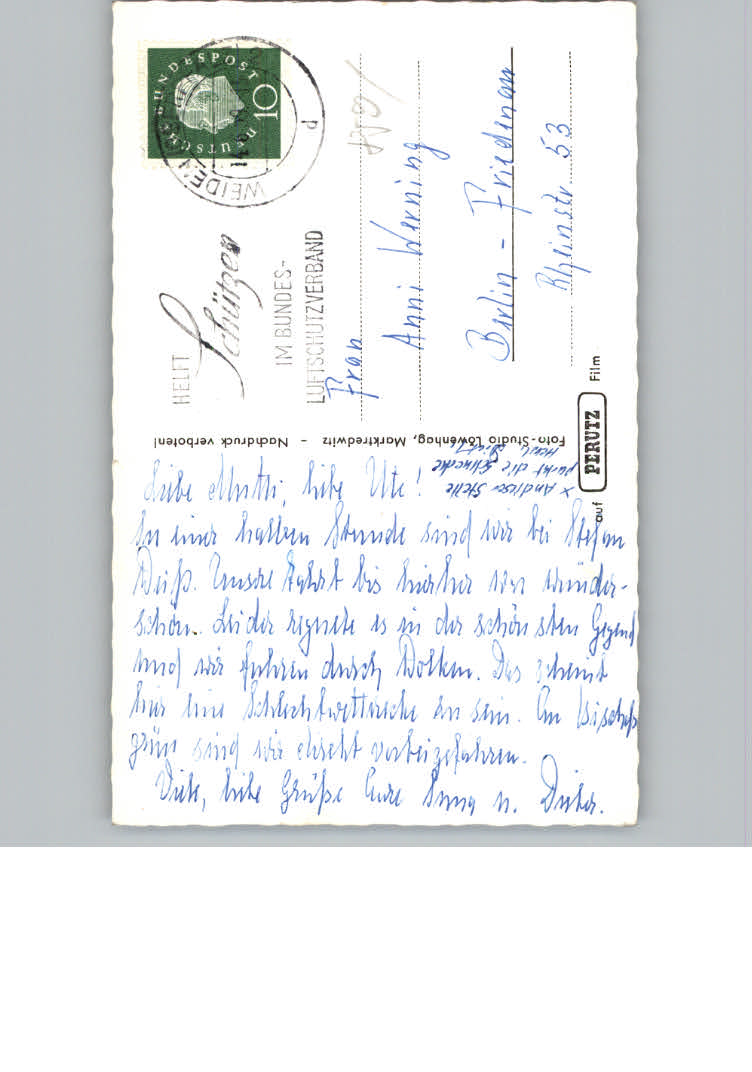 DEUTSCHE BUNDESPOST
10
WEIDEN
HELFT
Schützen
IM BUNDES-
LUFTSCHUTZVERBAND
Frau
Anni Werning
Berlin - Friedenau
Rheinstr 53
Foto-Studio Löwenhag, Marktredwitz - Nachdruck verboten!
auf PERUTZ Film
x An dieser Stelle
parkt die Schnecke
Liebe Mutti, liebe Ute!
In einer halben Stunde sind wir bei Stefan
Weiß. Unsere Fahrt bis hierher war wunder-
schön. Leider regnete es in der schönsten Gegend
und wir fuhren durch Wolken. Das scheint
hier eine Schlechtwetterecke zu sein. An Bischofs
grün sind wir direkt vorbeigefahren.
Viele, liebe Grüße Eure u. Dieter.